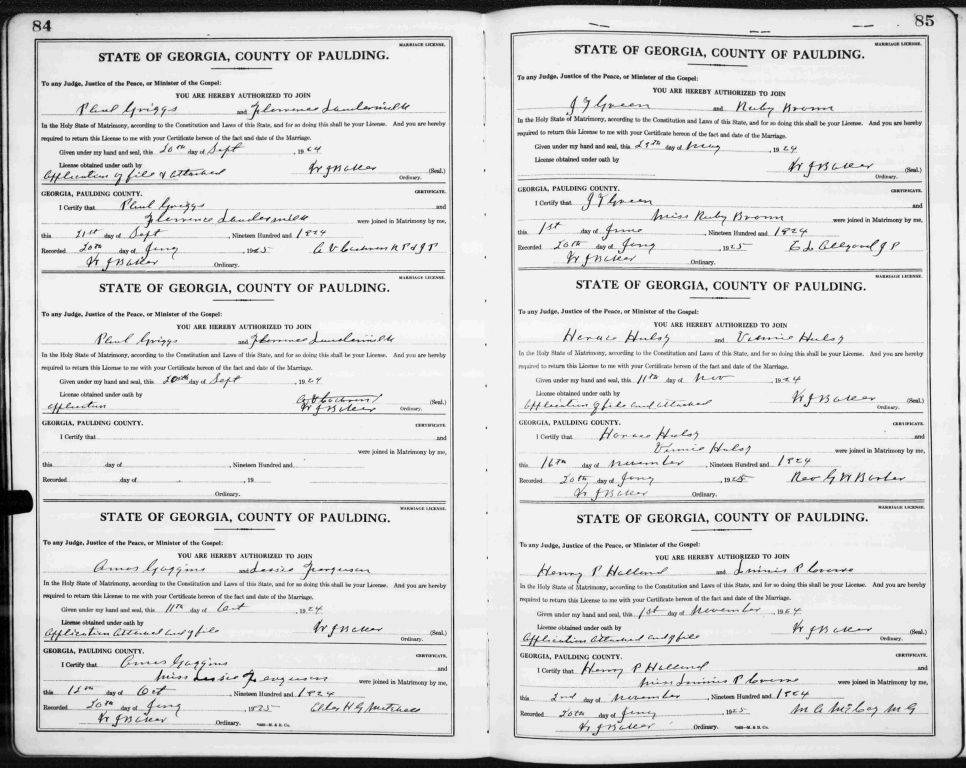 84
MARRIAGE LICENSE.
STATE OF GEORGIA, COUNTY OF PAULDING.
To any Judge, Justice of the Peace, or Minister of the Gospel:
YOU ARE HEREBY AUTHORIZED TO JOIN
Paul Griggs and Florence
In the Holy State of Matrimony, according to the Constitution and Laws of this State, and for so doing this shall be your License. And you are hereby
required to return this License to me with your Certificate hereon of the fact and date of the Marriage.
Given under my hand and seal, this 20th day of Sept , 1924
License obtained under oath by W J Baker (Seal.)
Application & attached Ordinary.
GEORGIA, PAULDING COUNTY. CERTIFICATE.
I Certify that Paul Griggs and
Florence were joined in Matrimony by me,
this 21st day of Sept , Nineteen Hundred and 1924
Recorded 20th day of Jany , 1925 J P
W J Baker Ordinary.
MARRIAGE LICENSE.
STATE OF GEORGIA, COUNTY OF PAULDING.
To any Judge, Justice of the Peace, or Minister of the Gospel:
YOU ARE HEREBY AUTHORIZED TO JOIN
Paul Griggs and Florence
In the Holy State of Matrimony, according to the Constitution and Laws of this State, and for so doing this shall be your License. And you are hereby
required to return this License to me with your Certificate hereon of the fact and date of the Marriage.
Given under my hand and seal, this 20th day of Sept , 1924
License obtained under oath by (Seal.)
Application W J Baker Ordinary.
GEORGIA, PAULDING COUNTY. CERTIFICATE.
I Certify that and
were joined in Matrimony by me,
this day of , Nineteen Hundred and
Recorded day of , 19
Ordinary.
MARRIAGE LICENSE.
STATE OF GEORGIA, COUNTY OF PAULDING.
To any Judge, Justice of the Peace, or Minister of the Gospel:
YOU ARE HEREBY AUTHORIZED TO JOIN
Amos Goggins and Jessie Ferguson
In the Holy State of Matrimony, according to the Constitution and Laws of this State, and for so doing this shall be your License. And you are hereby
required to return this License to me with your Certificate hereon of the fact and date of the Marriage.
Given under my hand and seal, this 11th day of Oct , 1924
License obtained under oath by W J Baker (Seal.)
Application attached and file Ordinary.
GEORGIA, PAULDING COUNTY. CERTIFICATE.
I Certify that Amos Goggins and
Miss Jessie Ferguson were joined in Matrimony by me,
this 12th day of Oct , Nineteen Hundred and 1924
Recorded 20th day of Jany , 1925 H G Mitchell
W J Baker Ordinary.
85
MARRIAGE LICENSE.
STATE OF GEORGIA, COUNTY OF PAULDING.
To any Judge, Justice of the Peace, or Minister of the Gospel:
YOU ARE HEREBY AUTHORIZED TO JOIN
J T Green and Ruby Brown
In the Holy State of Matrimony, according to the Constitution and Laws of this State, and for so doing this shall be your License. And you are hereby
required to return this License to me with your Certificate hereon of the fact and date of the Marriage.
Given under my hand and seal, this day of May , 1924
License obtained under oath by W J Baker (Seal.)
Ordinary.
GEORGIA, PAULDING COUNTY. CERTIFICATE.
I Certify that J T Green and
Miss Ruby Brown were joined in Matrimony by me,
this 1st day of June , Nineteen Hundred and 1924
Recorded 20th day of Jany , 1925 Allgood J P
W J Baker Ordinary.
MARRIAGE LICENSE.
STATE OF GEORGIA, COUNTY OF PAULDING.
To any Judge, Justice of the Peace, or Minister of the Gospel:
YOU ARE HEREBY AUTHORIZED TO JOIN
Horace Hulsy and Vinnie Hulsy
In the Holy State of Matrimony, according to the Constitution and Laws of this State, and for so doing this shall be your License. And you are hereby
required to return this License to me with your Certificate hereon of the fact and date of the Marriage.
Given under my hand and seal, this 11th day of Nov , 1924
License obtained under oath by W J Baker (Seal.)
Application file and attached Ordinary.
GEORGIA, PAULDING COUNTY. CERTIFICATE.
I Certify that Horace Hulsy and
Vinnie Hulsy were joined in Matrimony by me,
this 16th day of November , Nineteen Hundred and 1924
Recorded 20th day of Jany , 1925 Rev G W Barber
W J Baker Ordinary.
MARRIAGE LICENSE.
STATE OF GEORGIA, COUNTY OF PAULDING.
To any Judge, Justice of the Peace, or Minister of the Gospel:
YOU ARE HEREBY AUTHORIZED TO JOIN
Henry P Holland and P
In the Holy State of Matrimony, according to the Constitution and Laws of this State, and for so doing this shall be your License. And you are hereby
required to return this License to me with your Certificate hereon of the fact and date of the Marriage.
Given under my hand and seal, this 1st day of November , 1924
License obtained under oath by W J Baker (Seal.)
Application attached and file Ordinary.
GEORGIA, PAULDING COUNTY. CERTIFICATE.
I Certify that Henry P Holland and
Miss P were joined in Matrimony by me,
this 2nd day of November , Nineteen Hundred and 1924
Recorded 20th day of Jany , 1925 M G
W J Baker Ordinary.